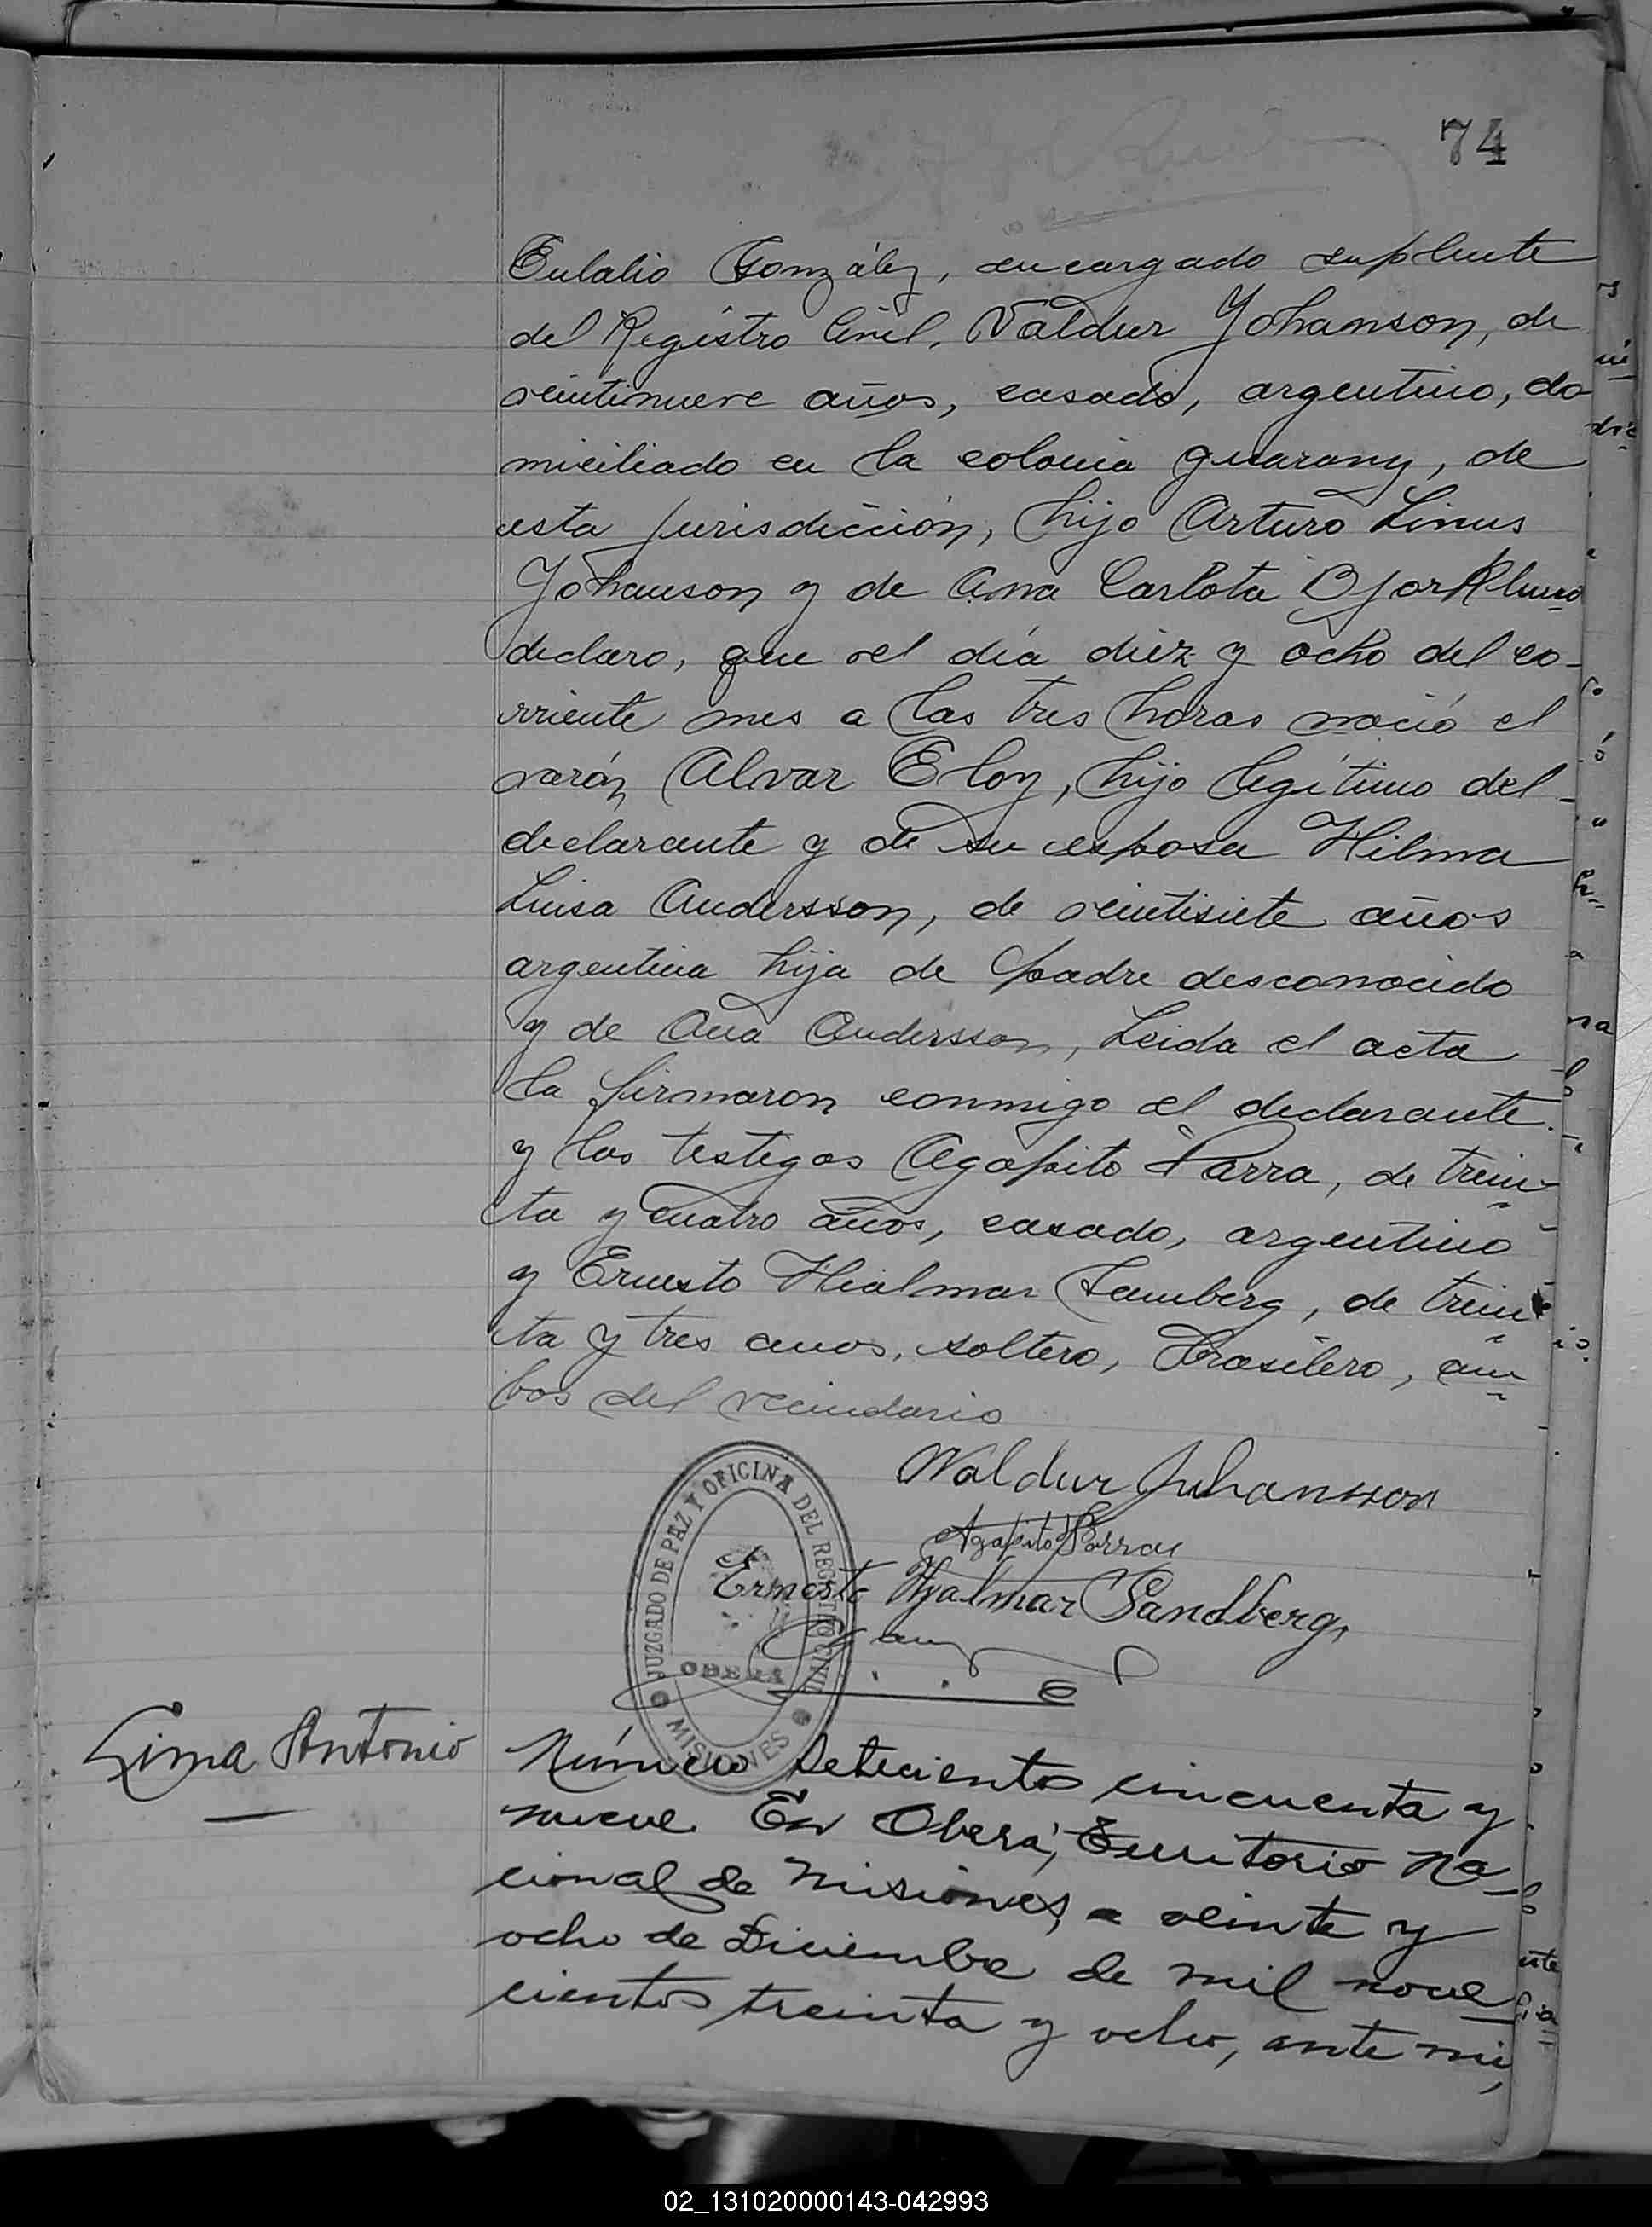 74
Eulalio González, encargado suplente
del Registro Civil, Valdur Yohanson, de
veintinueve años, casado, argentino, do
miciliado en la colonia guarany, de
esta jurisdicción, hijo Arturo Linus
Yohanson y de Ana Carlota
declaro, que el día diez y ocho del co-
rriente mes a las tres horas nació el
varón Alvar Eloy, hijo legítimo del
declarante y de su esposa Hilma
Luisa Andersson, de veintisiete años
argentina hija de padre desconocido
y de Ana Andersson, Leida el acta
la firmaron conmigo el declarante
y los testigos Agapito Parra, de trein-
ta y cuatro años, casado, argentino
y Ernesto Hialmar Samberg, de trein
ta y tres anos, soltero, Brasilero, am-
bos del vecindario
Waldur Juhansson
Agapito Parra
Ernesto Hjalmar Sandberg
JUZGADO DE PAZ Y OFICINA DEL REGISTRO CIVIL
OBERA
MISIONES
Lima Antonio
Número setecientos cincuenta y
nueve En Oberá, Territorio Na-
cional de Misiones, a veinte y
ocho de Diciembre de mil nove
cientos treinta y ocho, ante mi,
02_131020000143-042993